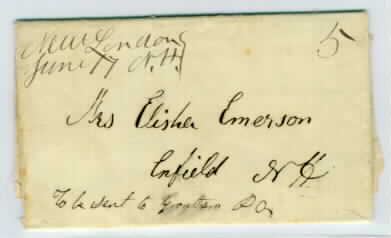 New London
June 17 N.H.
5
Mrs Elisha Emerson
Enfield N H
To be sent to Grafton P O